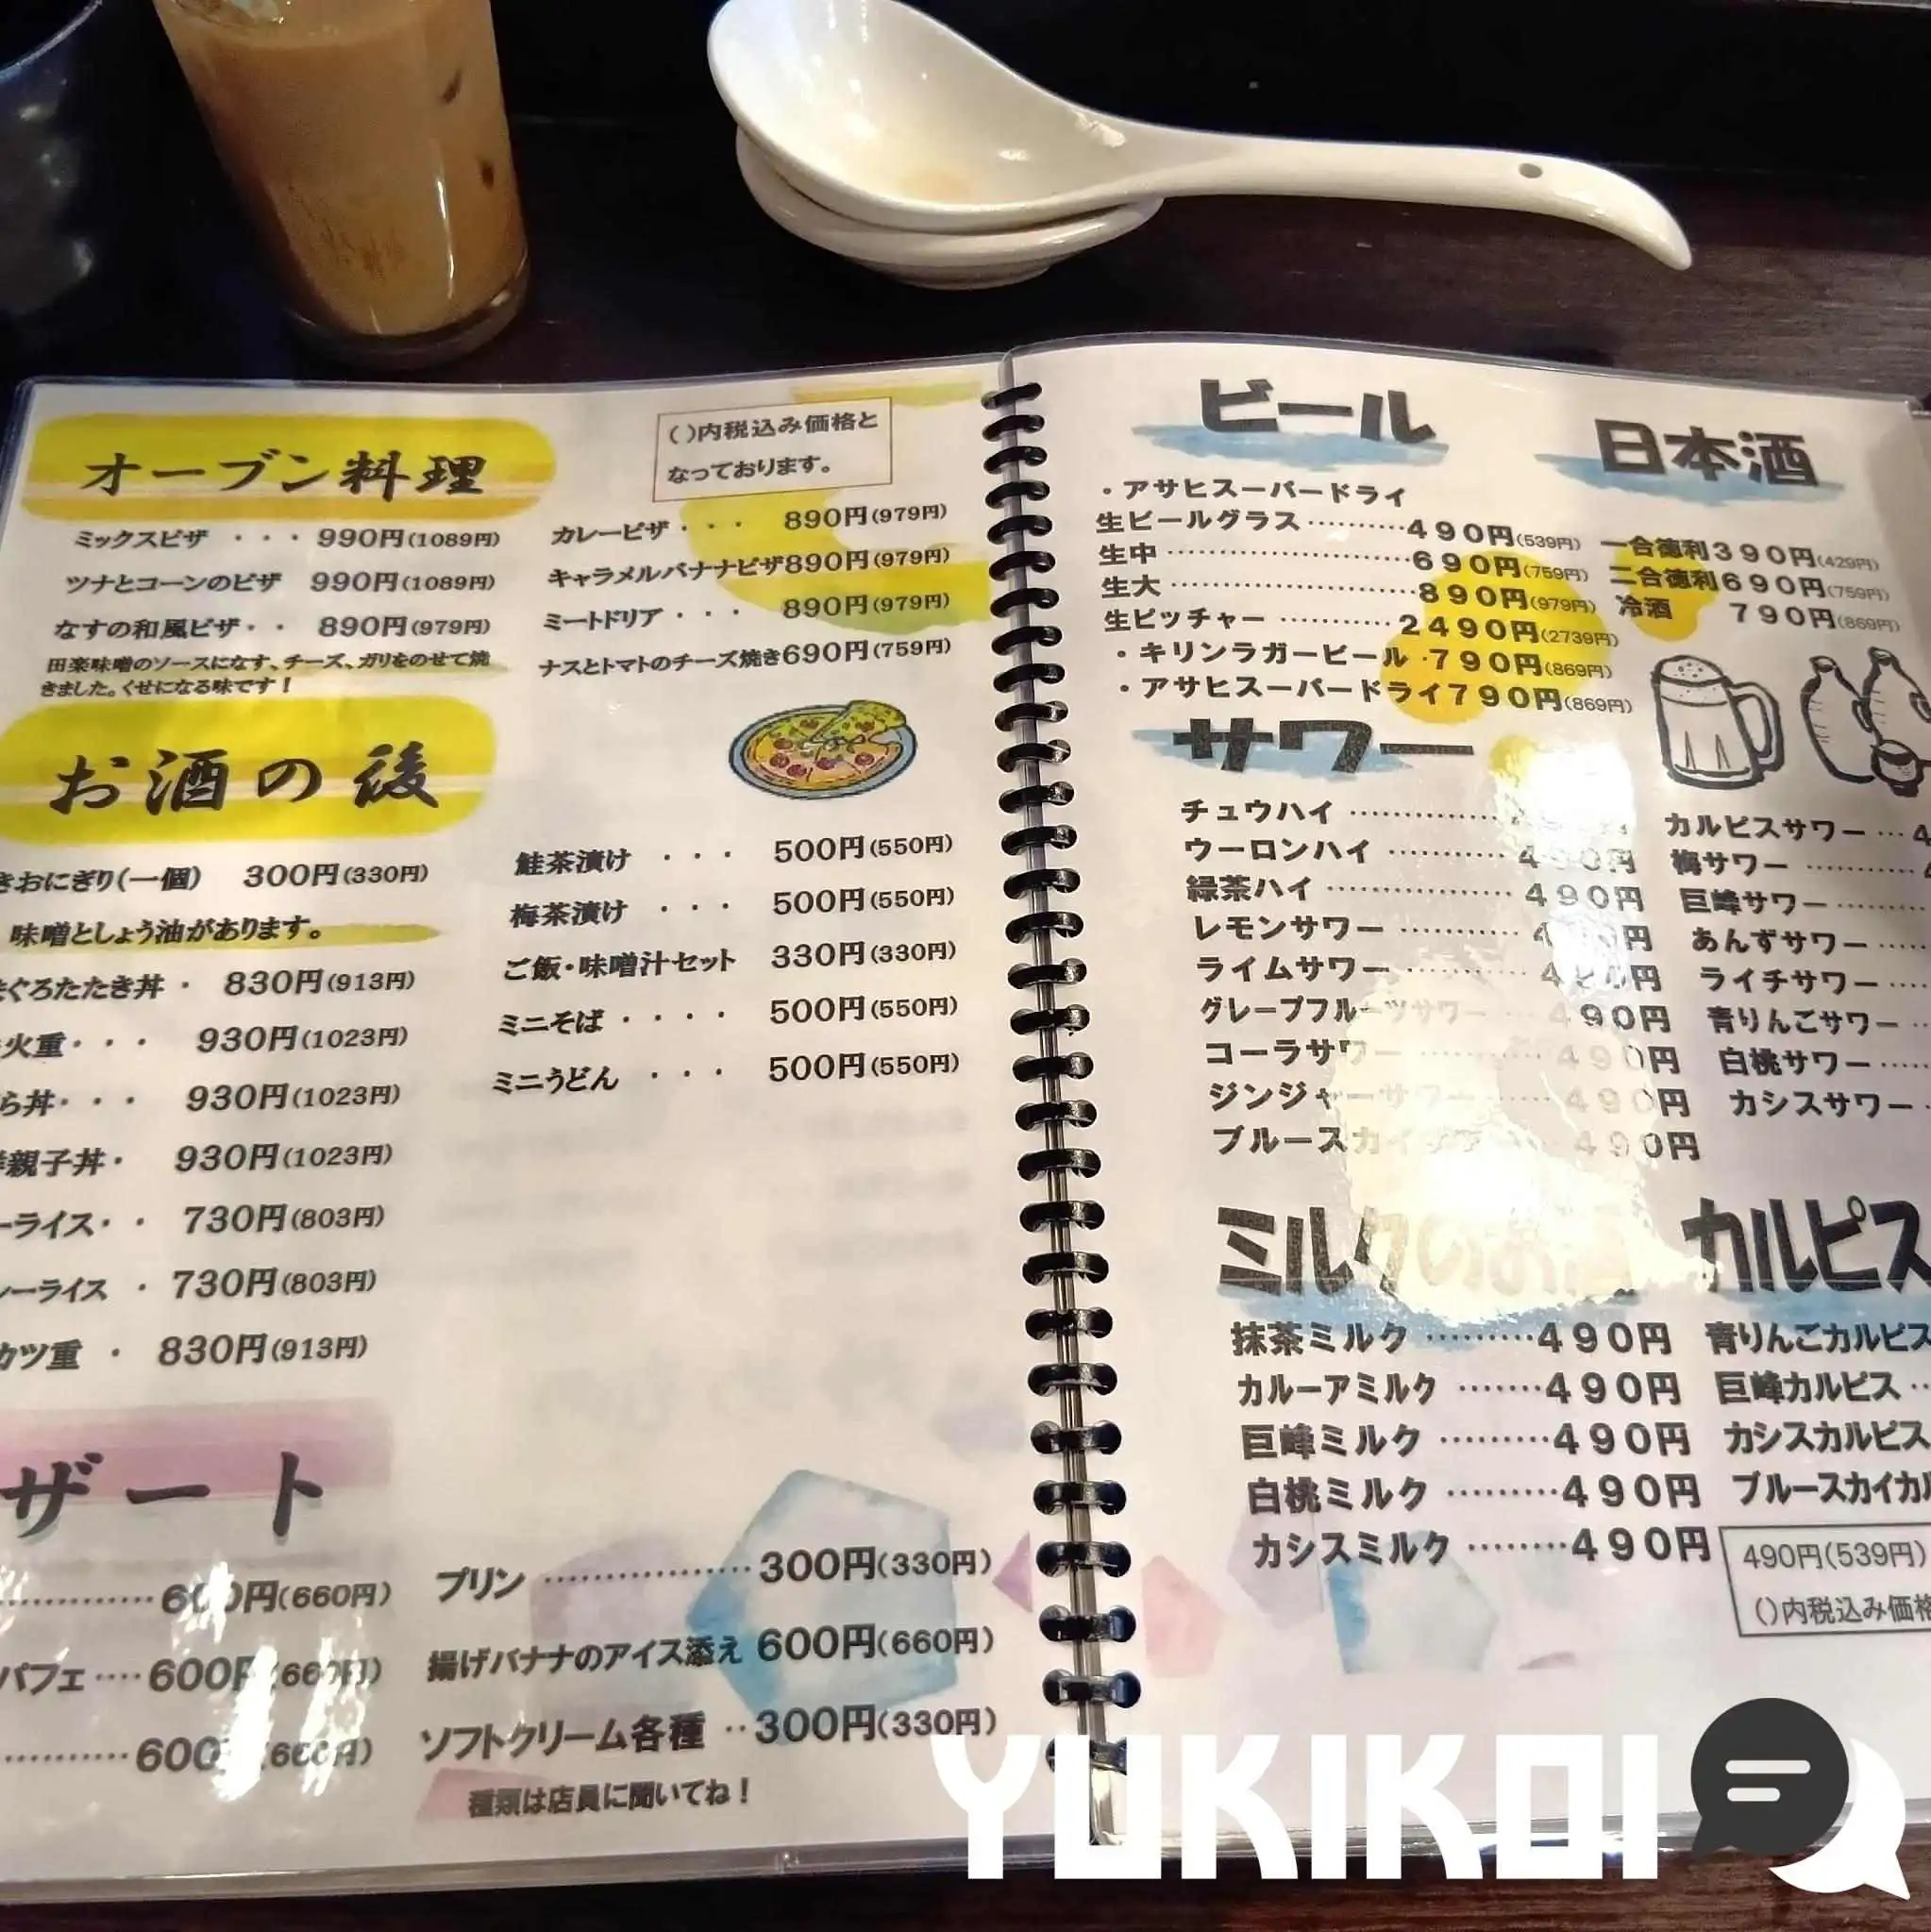 オーブン料理
()内税込み価格と
なっております。
ミックスピザ ・・・ 990円(1089円)
ツナとコーンのピザ 990円(1089円)
なすの和風ピザ・・ 890円(979円)
田楽味噌のソースになす、チーズ、ガリをのせて焼
きました。くせになる味です！
カレーピザ・・・ 890円(979円)
キャラメルバナナピザ890円(979円)
ミートドリア・・・ 890円(979円)
ナスとトマトのチーズ焼き690円(759円)
お酒の後
きおにぎり(一個) 300円(330円)
味噌としょう油があります。
ぐろたたき丼・ 830円(913円)
火重・・・ 930円(1023円)
ら丼・・・ 930円(1023円)
親子丼・ 930円(1023円)
ーライス・・ 730円(803円)
ーライス ・ 730円(803円)
カツ重 ・ 830円(913円)
鮭茶漬け ・・・ 500円(550円)
梅茶漬け ・・・ 500円(550円)
ご飯・味噌汁セット 330円(330円)
ミニそば・・・・ 500円(550円)
ミニうどん ・・・ 500円(550円)
ザート
600円(660円)
パフェ‥‥600円(660円)
600円(660円)
プリン ………………300円(330円)
揚げバナナのアイス添え 600円(660円)
ソフトクリーム各種 ‥300円(330円)
種類は店員に聞いてね！
ビール
・アサヒスーパードライ
生ビールグラス………490円(539円)
生中……………………690円(759円)
生大……………………890円(979円)
生ピッチャー …………2490円(2739円)
・キリンラガービール・790円(869円)
・アサヒスーパードライ790円(869円)
日本酒
一合徳利390円(429円)
二合徳利690円(759円)
冷酒 790円(869円)
サワー
チュウハイ ……………
ウーロンハイ …………490円
緑茶ハイ ………………490円
レモンサワー …………490円
ライムサワー …………490円
グレープフルーツサワー 490円
コーラサワー …………490円
ジンジャーサワー ……490円
ブルースカイサワー …490円
カルピスサワー…4
梅サワー …………4
巨峰サワー………
あんずサワー……
ライチサワー……
青りんごサワー…
白桃サワー………
カシスサワー…
ミルクのお酒
抹茶ミルク ………490円
カルーアミルク ……490円
巨峰ミルク ………490円
白桃ミルク ………490円
カシスミルク ……490円
カルピス
青りんごカルピス
巨峰カルピス…
カシスカルピス
ブルースカイカル
490円(539円)
()内税込み価格
YUKIKOI